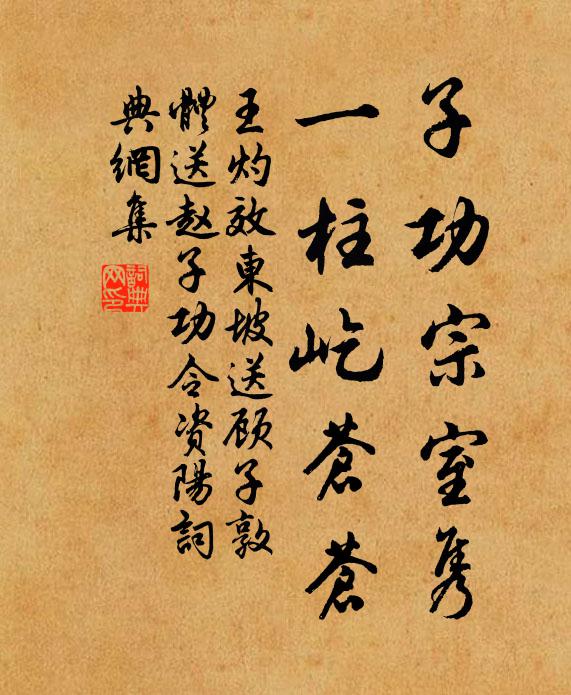 子功宗室隽
一柱屹蒼蒼
王灼效東坡送顾子敦
體送赵子功令资陽詞
典網集
詞典网印